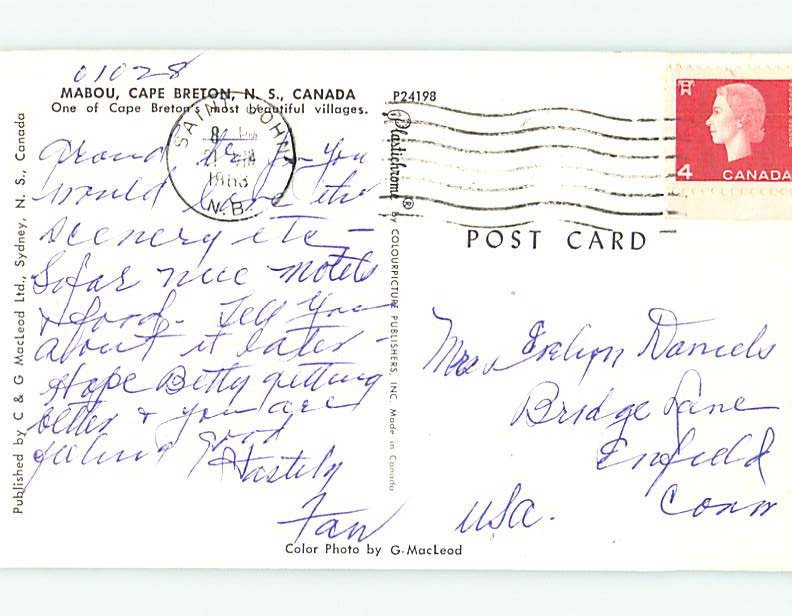 01028
MABOU, CAPE BRETON, N. S., CANADA
One of Cape Breton's most beautiful villages.
P24198
SAINT JOHN
8
1963
N.B.
4
CANADA
POST CARD
Published by C & G MacLeod Ltd., Sydney, N. S., Canada
Plastichrome® by COLOURPICTURE PUBLISHERS, INC. Made in Canada
you
would love the
scenery etc -
So far nice motels
& food. Tell you
about it later -
Hope Betty getting
better & you are
feeling good
Hastily
Fan
Mrs. Evelyn Daniels
Bridge Lane
Enfield
Conn
USA.
Color Photo by G. MacLeod